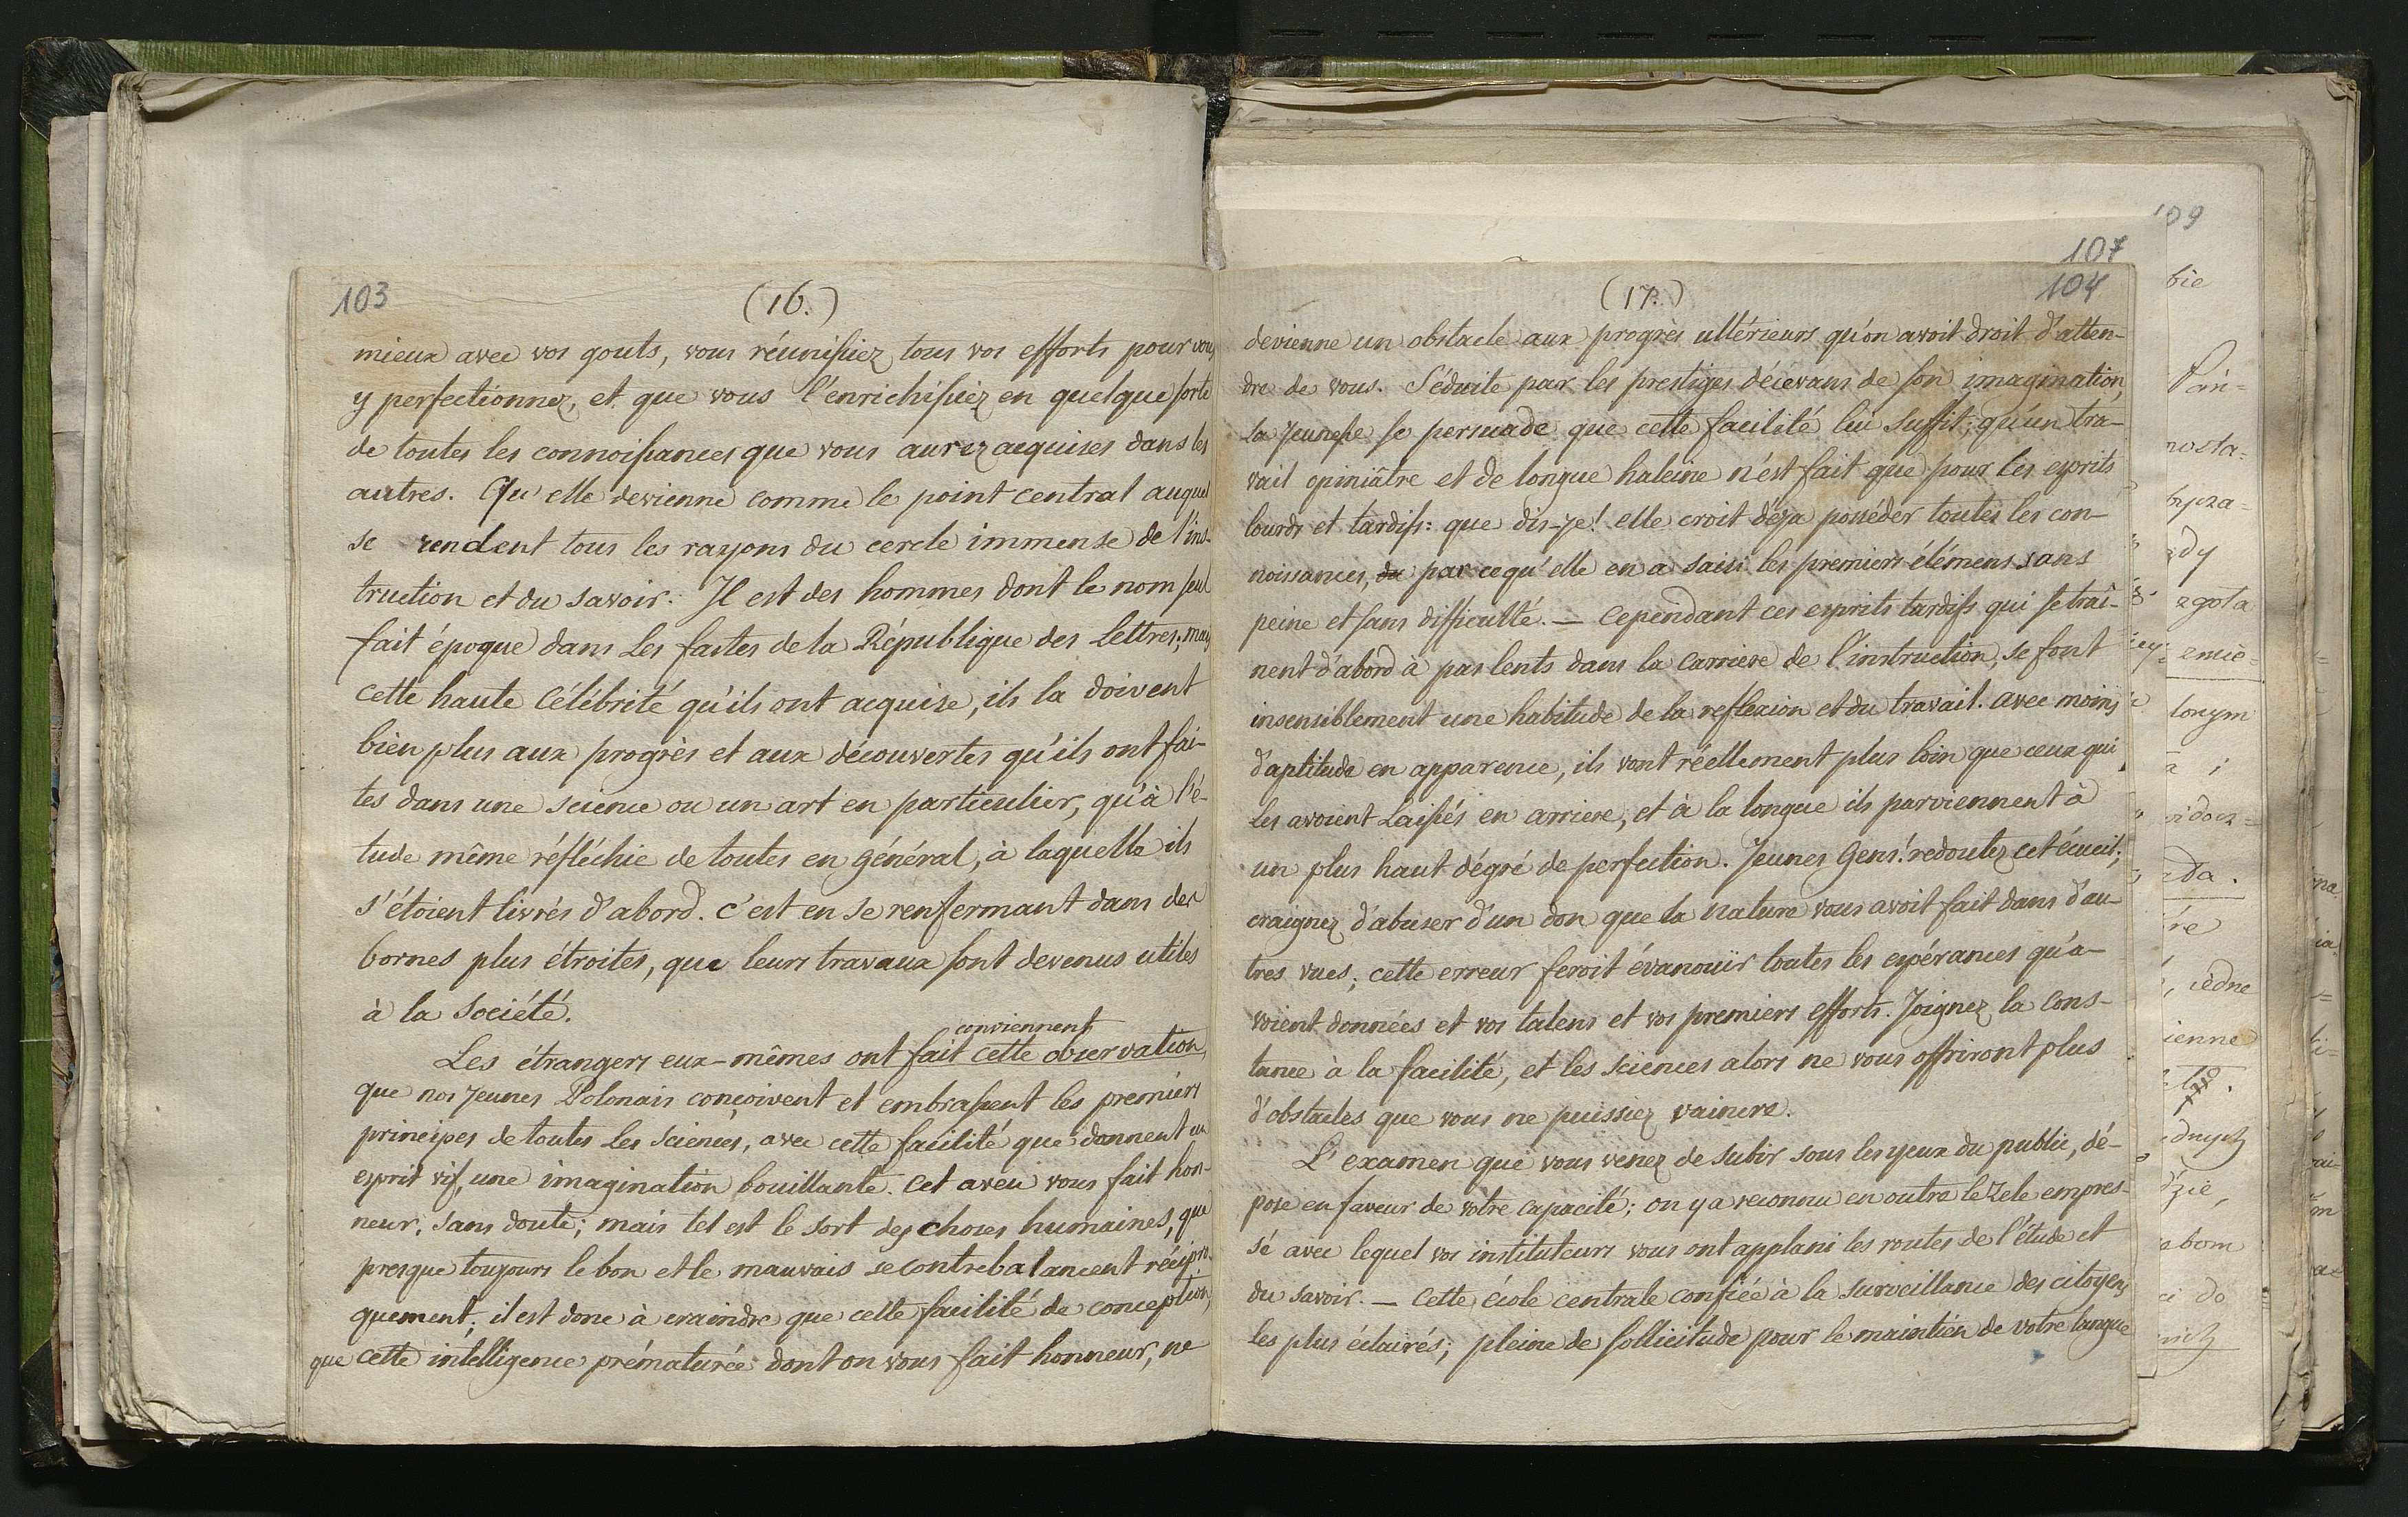 103
(16.)
mieux avec vos gouts, vous réunissiez tous vos efforts pour vous
y perfectionner, et que vous l'enrichissiez en quelque sorte
de toutes les connoissances que vous aurez acquises dans les
autres. Qu'elle devienne comme le point central auquel
se rendent tous les rayons du cercle immense de l'ins-
truction et du savoir. Il est des hommes dont le nom seul
fait époque dans les fastes de la République des Lettres; mais
cette haute célébrité qu'ils ont acquise, ils la doivent
bien plus aux progrès et aux découvertes qu'ils ont fai-
tes dans une science ou un art en particulier, qu'à l'é-
tude même réfléchie de toutes en général, à laquelle ils
s'étoient livrés d'abord. c'est en se renfermant dans des
bornes plus étroites, que leurs travaux sont devenus utiles
à la Société.
conviennent
Les étrangers eux-mêmes ont fait cette observation,
que nos jeunes Polonais conçoivent et embrassent les premiers
principes de toutes les sciences, avec cette facilité que donnent un
esprit vif, une imagination bouillante. Cet aveu vous fait hon-
neur, sans doute; mais tel est le sort des choses humaines, que
presque toujours le bon et le mauvais se contrebalancent récipro-
quement; il est donc à craindre que cette facilité de conception,
que cette intelligence prématurée dont on vous fait honneur, ne
107
104
(17.)
devienne un obstacle aux progrès ultérieurs qu'on avoit droit d'atten-
dre de vous. Séduite par les prestiges décevans de son imagination,
la jeunesse se persuade que cette facilité lui suffit; qu'un tra-
vail opiniâtre et de longue haleine n'est fait que pour les esprits
lourds et tardifs: que dis-je! elle croit déja posséder toutes les con-
noissances, du parcequ'elle en a saisi les premiers élémens sans
peine et sans difficulté. — Cependant ces esprits tardifs qui se traî-
nent d'abord à pas lents dans la carriere de l'instruction, se font
insensiblement une habitude de la reflexion et du travail. avec moins
d'aptitude en apparence, ils vont réellement plus loin que ceux qui
les avoient laissés en arriere, et à la longue ils parviennent à
un plus haut dégré de perfection. Jeunes Gens! redoutez cet écueil;
craignez d'abuser d'un don que la nature vous avoit fait dans d'au-
tres vues; cette erreur feroit évanouir toutes les espérances qu'a-
voient données et vos talens et vos premiers efforts. Joignez la cons-
tance à la facilité, et les sciences alors ne vous offriront plus
d'obstacles que vous ne puissiez vaincre.
L'examen que vous venez de subir sous les yeux du public, dé-
pose en faveur de votre capacité; on y a reconnu en outre le zele empres-
sé avec lequel vos instituteurs vous ont applani les routes de l'étude et
du savoir. — Cette école centrale confiée à la surveillance des citoyens
les plus éclairés; pleine de sollicitude pour le maintien de votre langue
109
bie
ędy
zgota
longym
a i